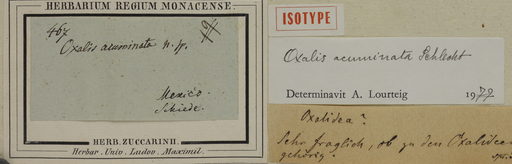 HERBARIUM REGIUM MONACENSE.
467 19.
Oxalis acuminata n. sp.
Mexico.
Schiede.
HERB. ZUCCARINII.
Herbar. Univ. Ludov. Maximil.
ISOTYPE
Oxalis acuminata Schlecht
Determinavit A. Lourteig 1979
Oxalidea?
Sehr fraglich, ob zu den Oxalideen
gehörig.